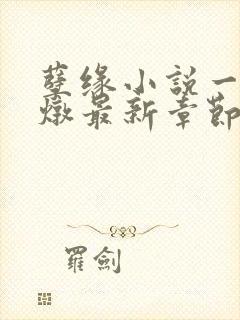 孽缘小説一
燉最新章節
羅劍